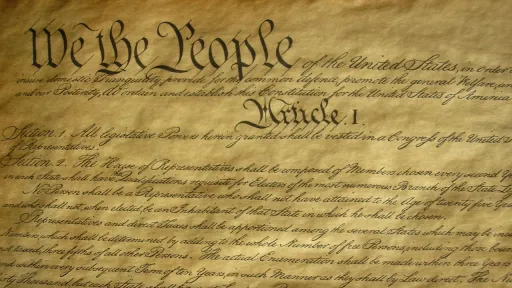 We the People of the United States, in Order to
insure domestic Tranquility, provide for the common defence, promote the general Welfare, and
and our Posterity, do ordain and establish this Constitution for the United States of America
Article. I.
Section. 1. All legislative Powers herein granted shall be vested in a Congress of the United
of Representatives.
Section. 2. The House of Representatives shall be composed of Members chosen every second Year
in each State shall have the Qualifications requisite for Electors of the most numerous Branch of the State
No Person shall be a Representative who shall not have attained to the Age of twenty five Years
and who shall not, when elected, be an Inhabitant of that State in which he shall be chosen.
Representatives and direct Taxes shall be apportioned among the several States which may be
Numbers, which shall be determined by adding to the whole Number of free Persons, including those bound
not taxed, three fifths of all other Persons. The actual Enumeration shall be made within three Years
and within every subsequent Term of ten Years, in such Manner as they shall by Law direct. The
thirty Thousand, but each State shall